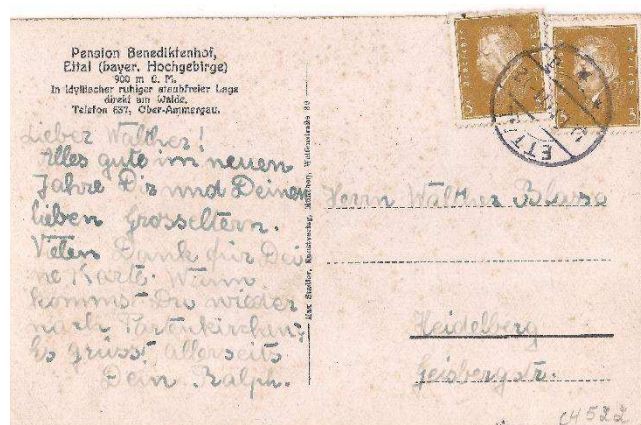 Pension Benediktenhof,
Ettal (bayer. Hochgebirge)
900 m ü. M.
In idyllischer ruhiger staubfreier Lage
direkt am Walde.
Telefon 637, Ober-Ammergau.
Lieber Walther!
Alles gute im neuen
Jahre Dir und Deinen
lieben Grosseltern.
Vielen Dank für Dei
ne Karte. Wann
kommst Du wieder
nach Partenkirchen?
Es grüsst allerseits
Dein Ralph.
Max Stadler, Kunstverlag, München,
ETTAL
3
3
Herrn Walther
Heidelberg
Geisbergstr.
C4522